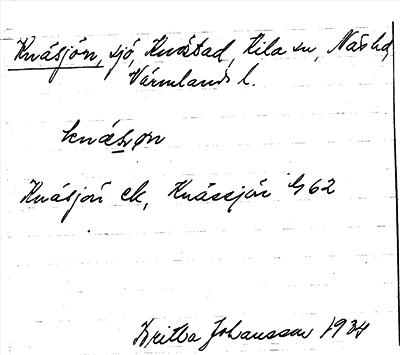 Knåsjön, sjö, Knåstad, Kila sn, Näs hd,
Värmlands l.
knåsøn
Knåsjön ek, Knåssjön G 62
Britta Johansson 1934